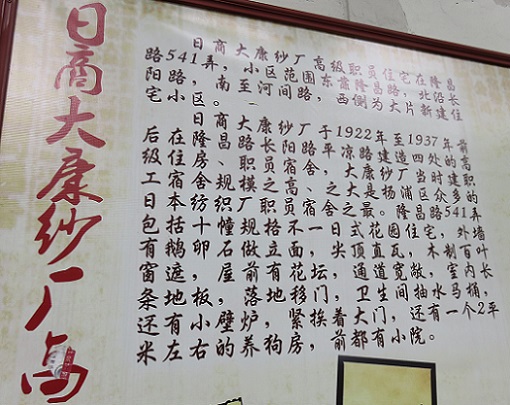 日商大康纱厂高
日商大康纱厂高级职员住宅在隆昌
路541弄，小区范围东靠隆昌路，北沿长
阳路，南至河间路，西侧为大片新建住
宅小区。
日商大康纱厂于1922年至1937年前
后在隆昌路长阳路平凉路建造四处的高
级住房、职员宿舍，大康纱厂当时建职
工宿舍规模之高、之大是杨浦区众多的
日本纺织厂职员宿舍之最。隆昌路541弄
包括十幢规格不一日式花园住宅，外墙
有鹅卵石做立面，尖顶直瓦，木制百叶
窗遮，屋前有花坛，通道宽敞，室内长
条地板，落地移门，卫生间抽水马桶，
还有小壁炉，紧挨着大门，还有一个2平
米左右的养狗房，前都有小院。